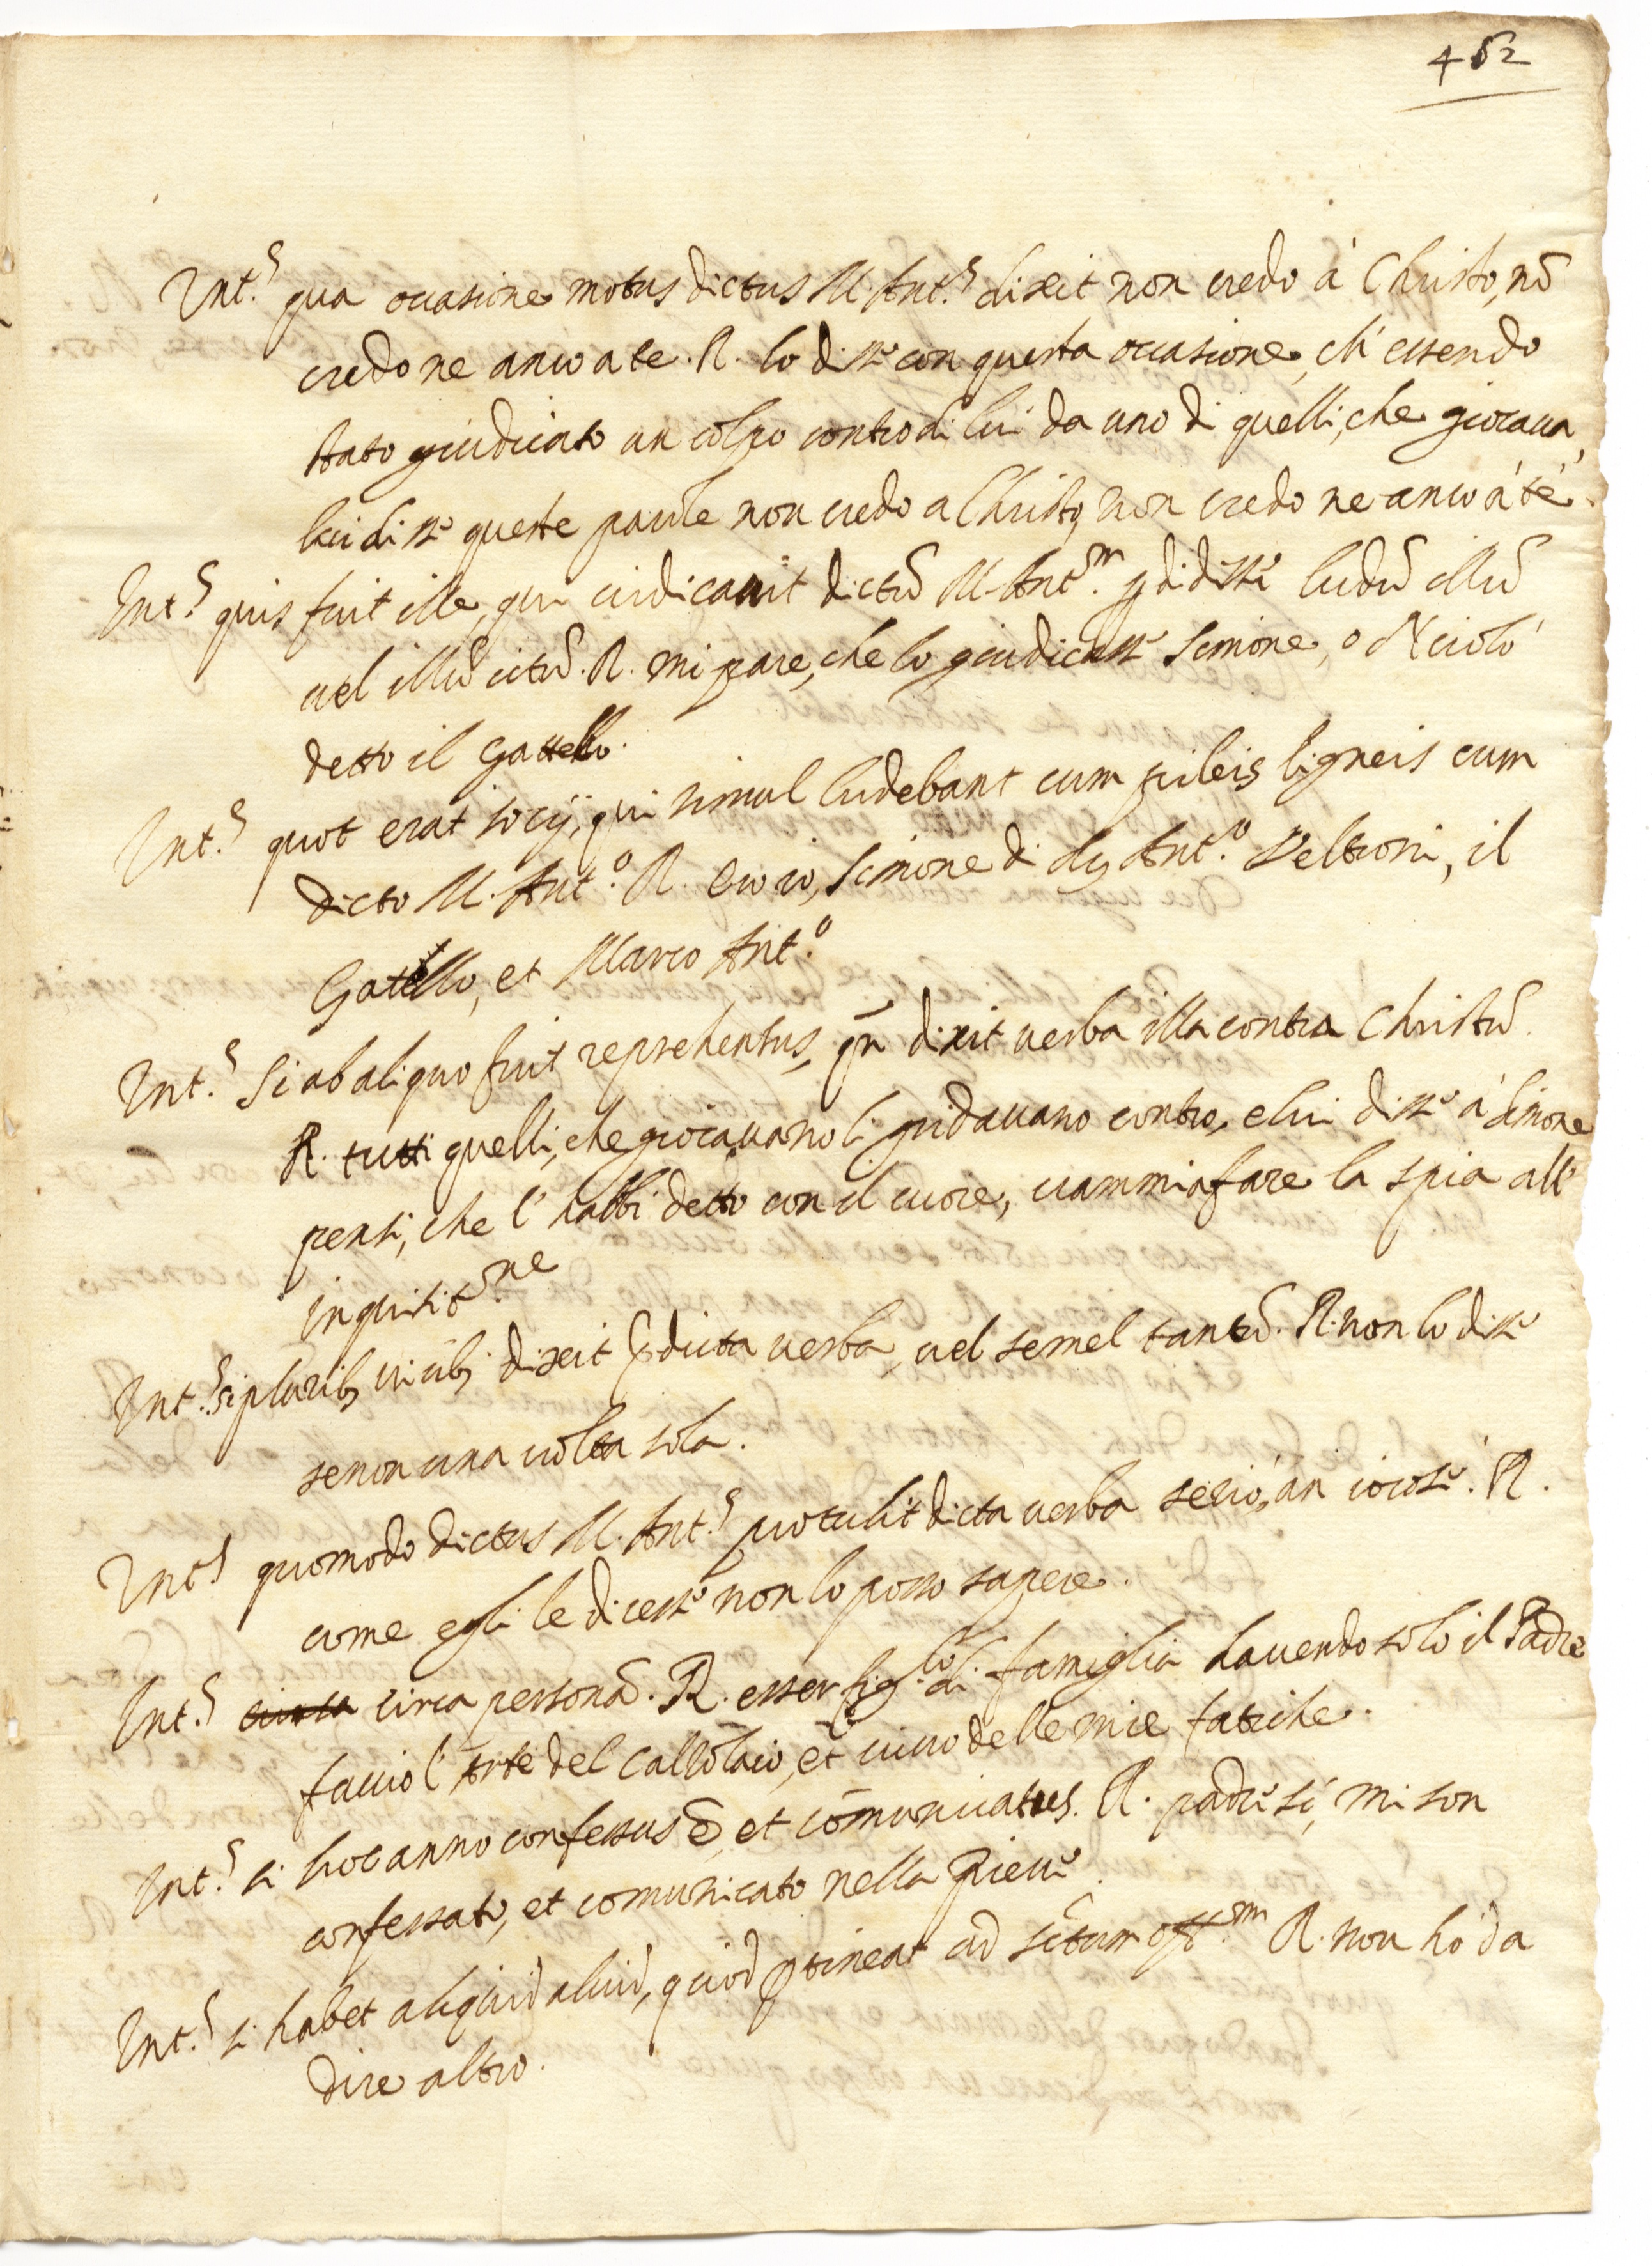 452
Int.s qua occasione motus dictus M. Ant.s dixit non credo à Christo, nō
credo ne anco a te. R. lo disse con questa occasione, ch'essendo
stato giudicato un colpo contro di lui da uno di quelli, che giocaua,
lui disse queste parole non credo a Christo, non credo ne anco à té.
Int.s quis fuit ille, qui iudicauit dictū M. Antū.m pdidisse ludū illū
uel illū ictū. R. mi pare, che lo giudicasse Simone, o Nicolò
detto il Gattello.
Int.s quot erat socij, qui simul ludebant cum pileis ligneis cum
dicto M. Ant.o R. ero io, Simone di Ant.o Peltroni, il
Gattello, et Marco Ant.o
Int.s si ab aliquo fuit reprehensus, qn̄ dixit uerba illa contra Christū.
R. tutti quelli, che giocauano li gridauano contro, e lui disse à Simone
pensi, che l'habbi detto con il cuore, uammi a fare la spia all'
inquisit.ne
Int.s si plurib; uicib; dixit pdicta uerba, uel semel tantū. R. non lo disse
se non una uolta sola.
Int.s quomodo dictus M. Ant.s protulit dicta uerba serio, an iocose. R.
come egli le dicesse non lo posso sapere.
Int.s circa personā. R. esser fig.lo di famiglia hauendo solo il Padre
faccio l'Arte del Calzolaio, et uiuo delle mie fatiche.
Int.s si hoc anno confessus ē, et cōmunicatus. R. padre sí, mi son
confessato, et comunicato nella Pieue.
Int.s si habet aliquid aliud, quod ptineat ad sctum off.m R. non hò da
dire altro.